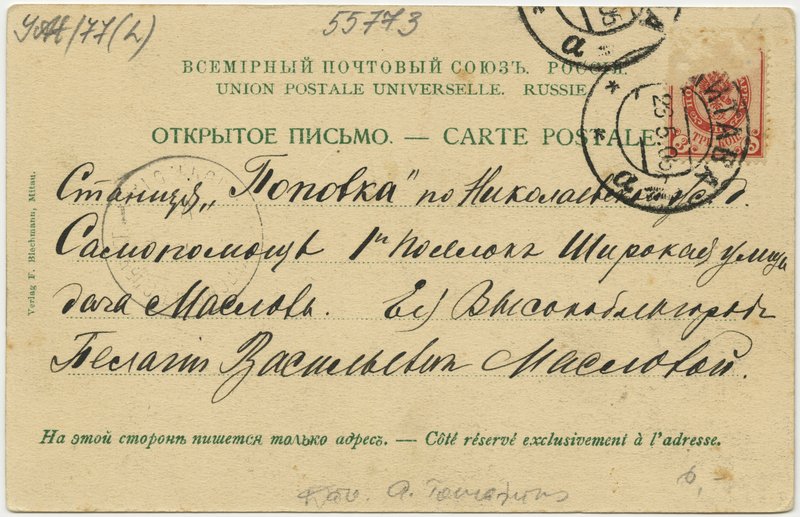 55773
ВСЕМІРНЫЙ ПОЧТОВЫЙ СОЮЗЪ. РОССІЯ.
UNION POSTALE UNIVERSELLE. RUSSIE
ОТКРЫТОЕ ПИСЬМО. — CARTE POSTALE
МИТАВА
23 5 05
а
Станція „Поповка" по Николаевской ж. д.
Самопомощь 1й Поселокъ Широкая улица
дача Масловъ. Ея Высокоблагородію
Пелагіи Васильевнѣ Масловой.
Verlag F. Blechmann, Mitau.
На этой сторонѣ пишется только адресъ. — Côté réservé exclusivement à l'adresse.